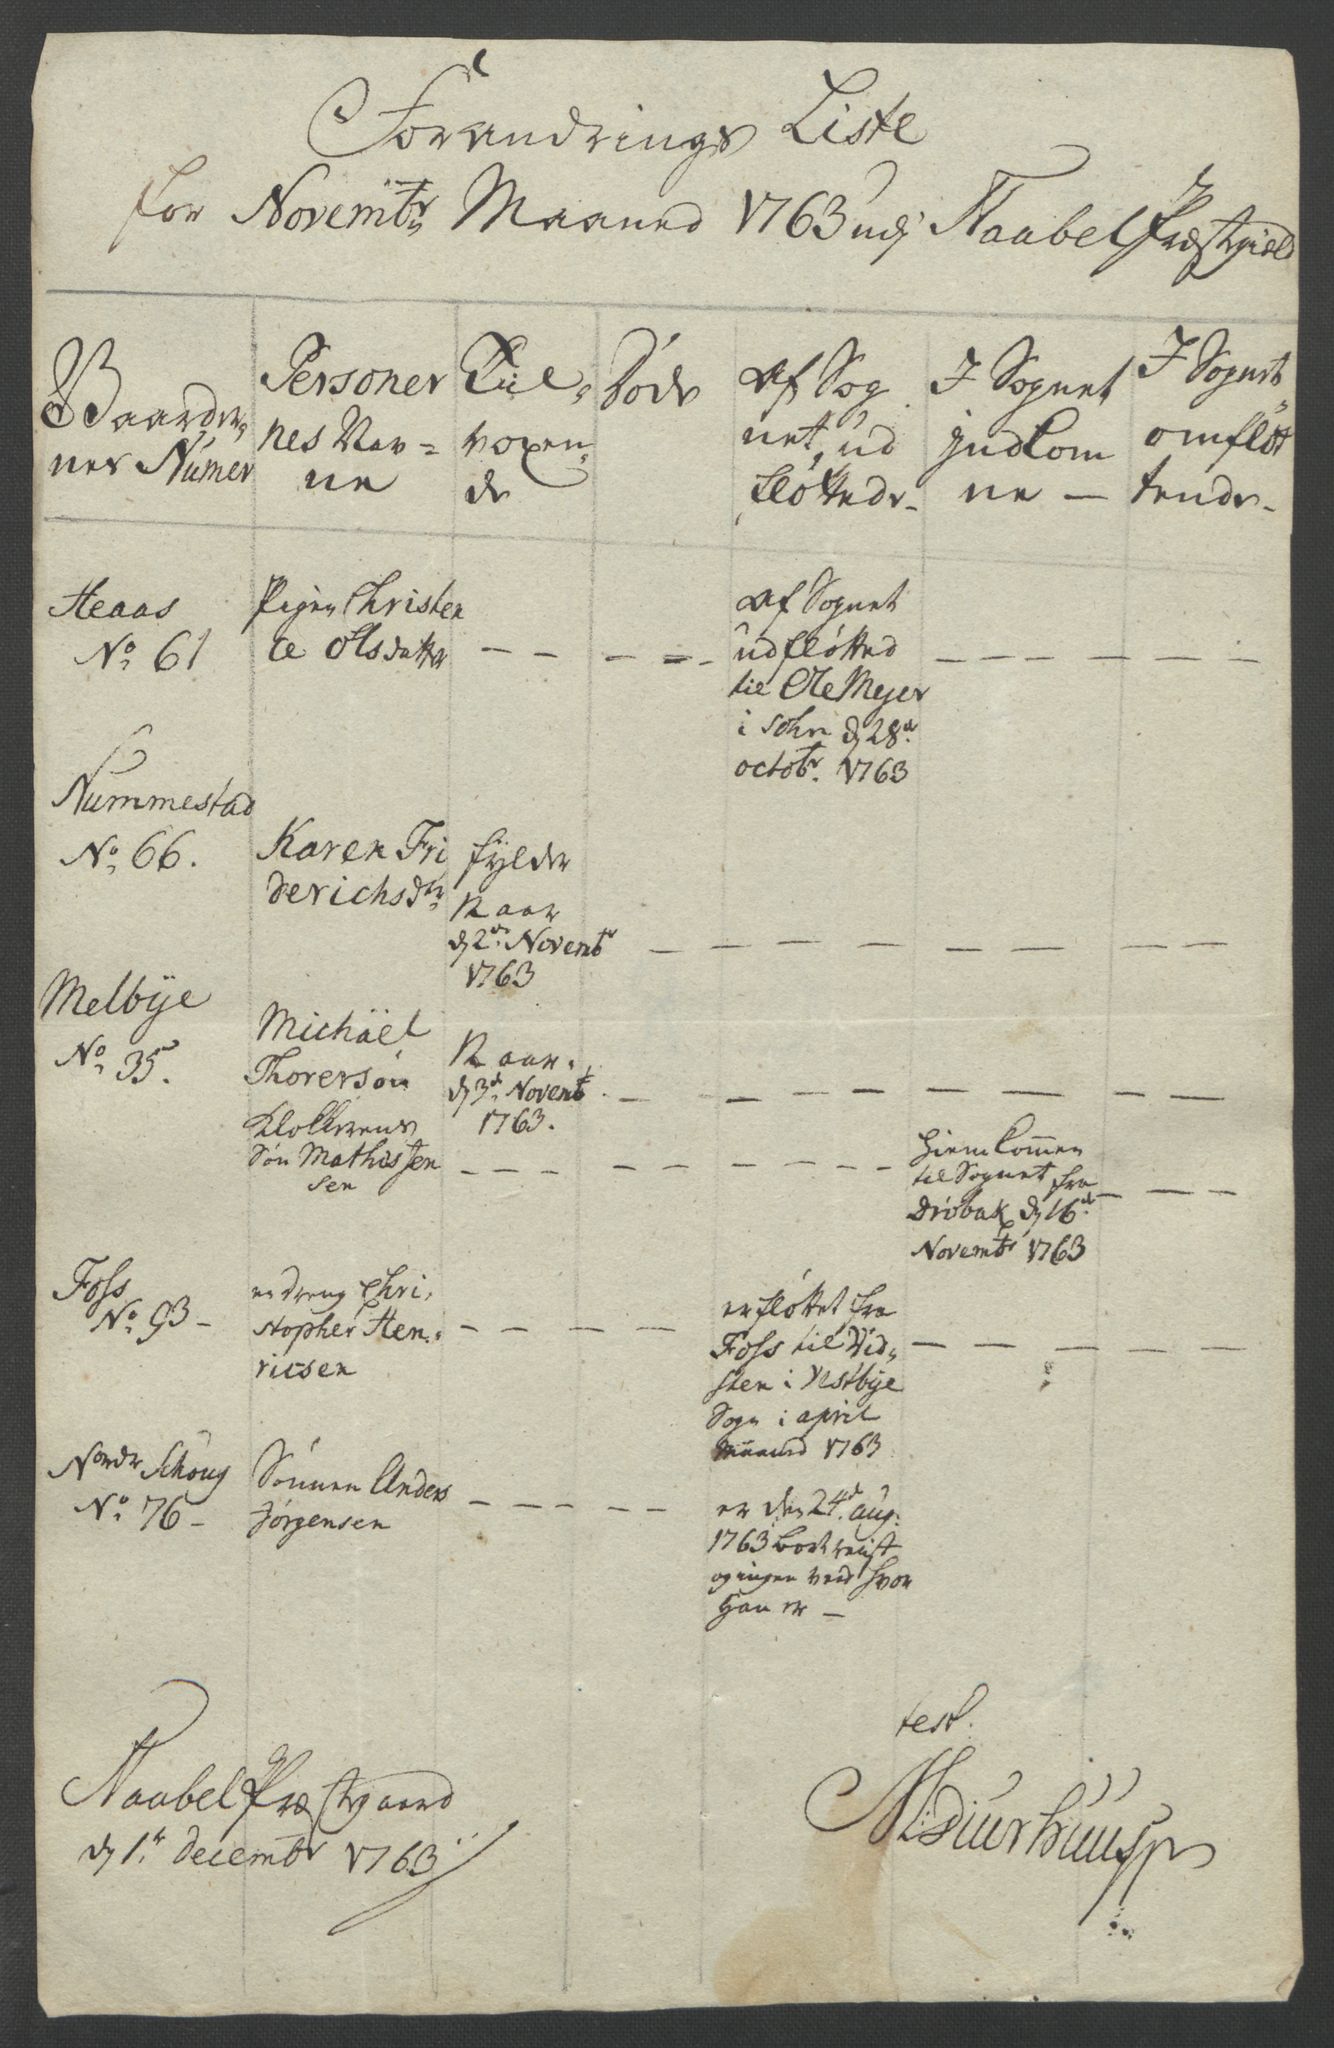 Forandrings Liste
for Novembr Maaned 1763 udj Naabel Præstegield
Gaarder,,
nes Numer
Personer
nes Nav=
ne
Till,,
voxen,,
de
Døde
Af Sog
net ud
fløttede-
I Sognet
indkom
ne —
I Sognet
omfløt
tende-
Aeaas
No 61
Pigen Christen
ce Olsdatter
Af Sognet
udfløtted
til Ole Meyer
i sohn d 28d
octobr. 1763
Nummestad
No 66.
Karen Fri
derichsdtr
fylder
12 aar
d 2den Novembr
1763
Melbÿe
No 35.
Michäel
Thorersøn
12 aar.
d 3d Novembr
1763.
Klokkerens
Søn Mathis Jen
sen
hiem kommen
til Sognet fra
Drøbak d 16d
Novembr 1763
Foss
No 93-
en dreng Chri,
stopher Hen,,
ricsen
er fløttet fra
Foss til Vid,,
sten i Vestbye
Sogn i april
Maaned 1763
Nordr Schoug
No 76-
Sønnen Anders
Jørgensen
er den 24d aug:
1763 bortreist
og ingen veed hvor
han er —
Naabel Præstegaard
d 1te decembr 1763
test.